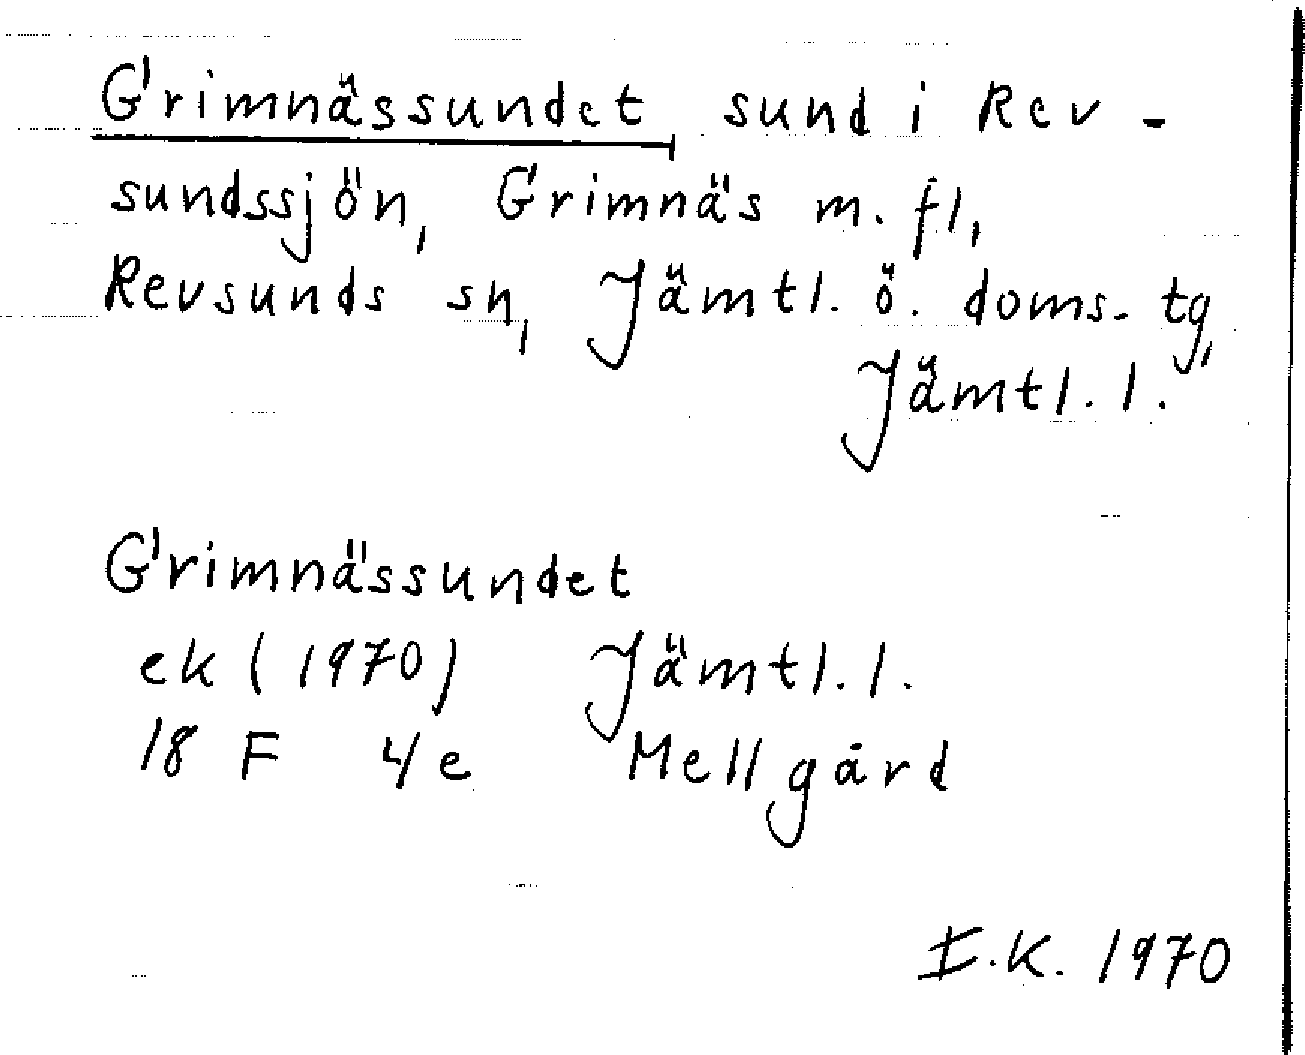 Grimnässundet sund i Rev-
sundssjön, Grimnäs m. fl,
Revsunds sn, Jämtl. ö. doms. tg,
Jämtl. l.
Grimnässundet
ek (1970) Jämtl. l.
18 F 4e Mellgård
I.K. 1970